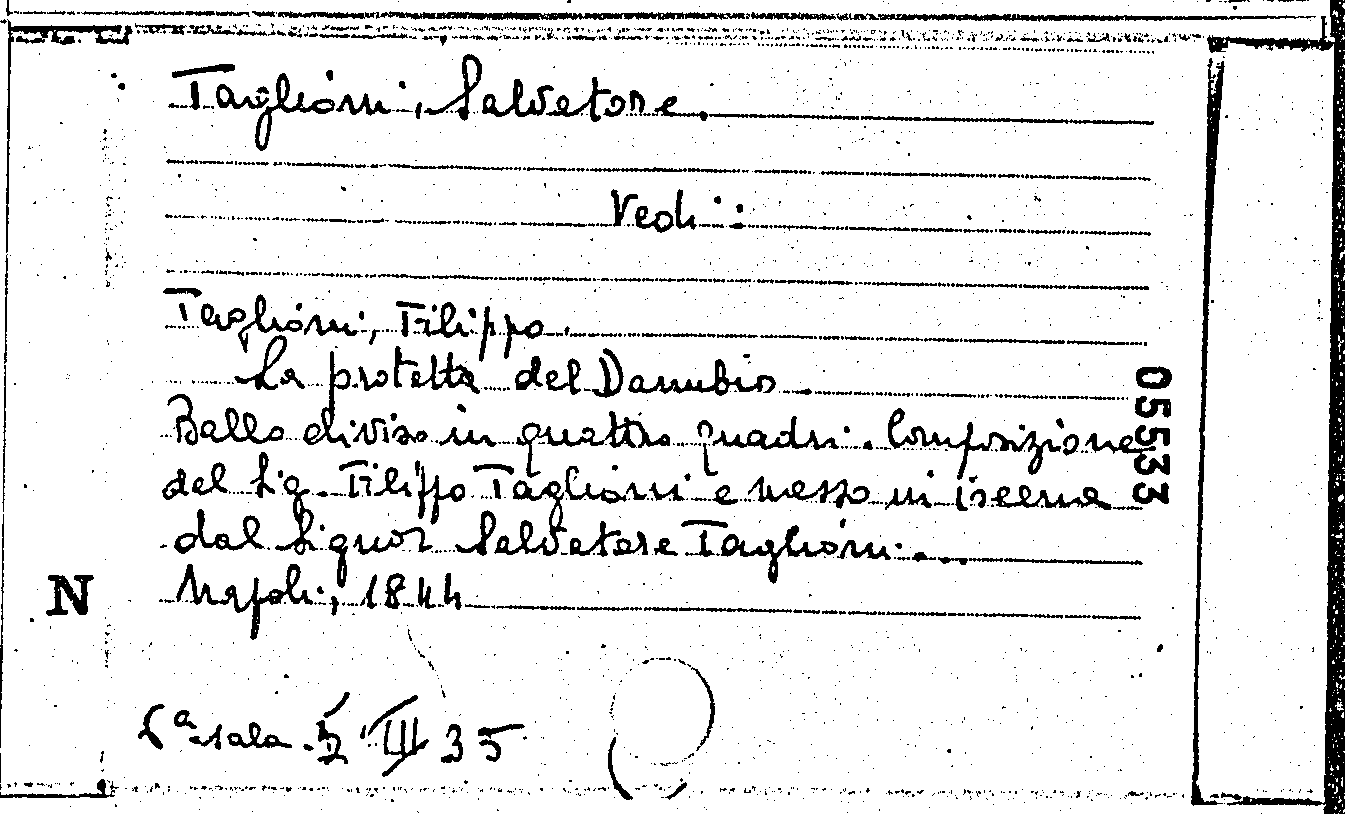 Taglioni, Salvatore.
Vedi:
Taglioni, Filippo.
La protetta del Danubio.
Ballo diviso in quattro quadri. Composizione
del Sig. Filippo Taglioni e messo in iscena
dal Signor Salvatore Taglioni...
Napoli, 1844
N
05533
6ª sala. 5 III 35